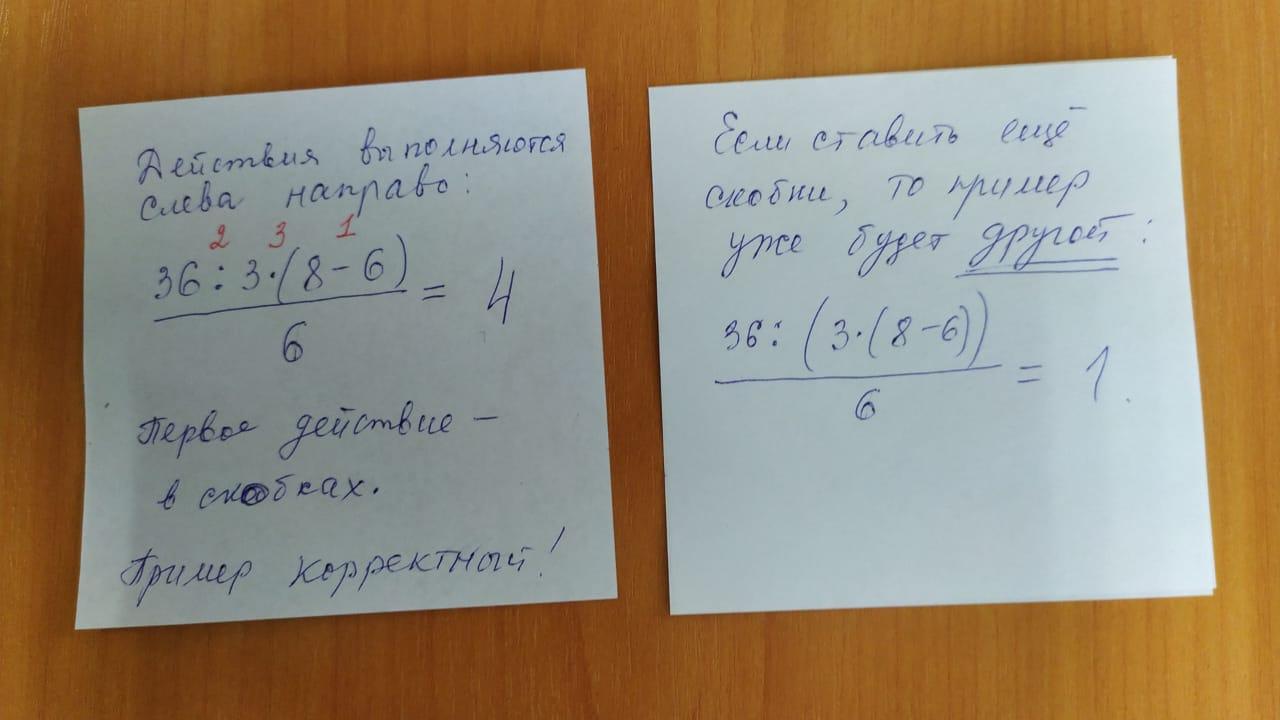 Действия выполняются
слева направо:
2 3 1
36 : 3 · (8 - 6)
6
= 4
Первое действие –
в скобках.
Пример корректный!
Если ставить ещё
скобки, то пример
уже будет другой:
36 : (3 · (8 - 6))
6
= 1.